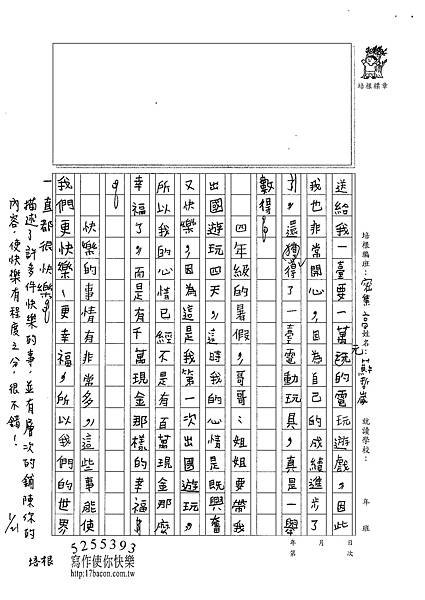 培根標章
培根編班：
姓名：
就讀學校：
年　班
年　月　日
第　次
送給我一臺要一萬元的電玩遊戲，因此
我也非常開心，因為自己的成績進步了
了，還獲得了一臺電動玩具，真是一舉
數得。
四年級的暑假，哥哥、姐姐要帶我
出國遊玩四天，這時我的心情是既興奮
又快樂，因為這是我第一次出國遊玩，
所以我的心情已經不是有百萬現金那麼
幸福了，而是有千萬現金那樣的幸福
。
快樂的事情有非常多，這些事能使
我們更快樂、更幸福，所以我們的世界
一直都很快樂。
描述了許多件快樂的事，並有層次的鋪陳你的
內容，使快樂有程度之分，很不錯！
1/21
5255393
培根 寫作使你快樂
http://17bacon.com.tw